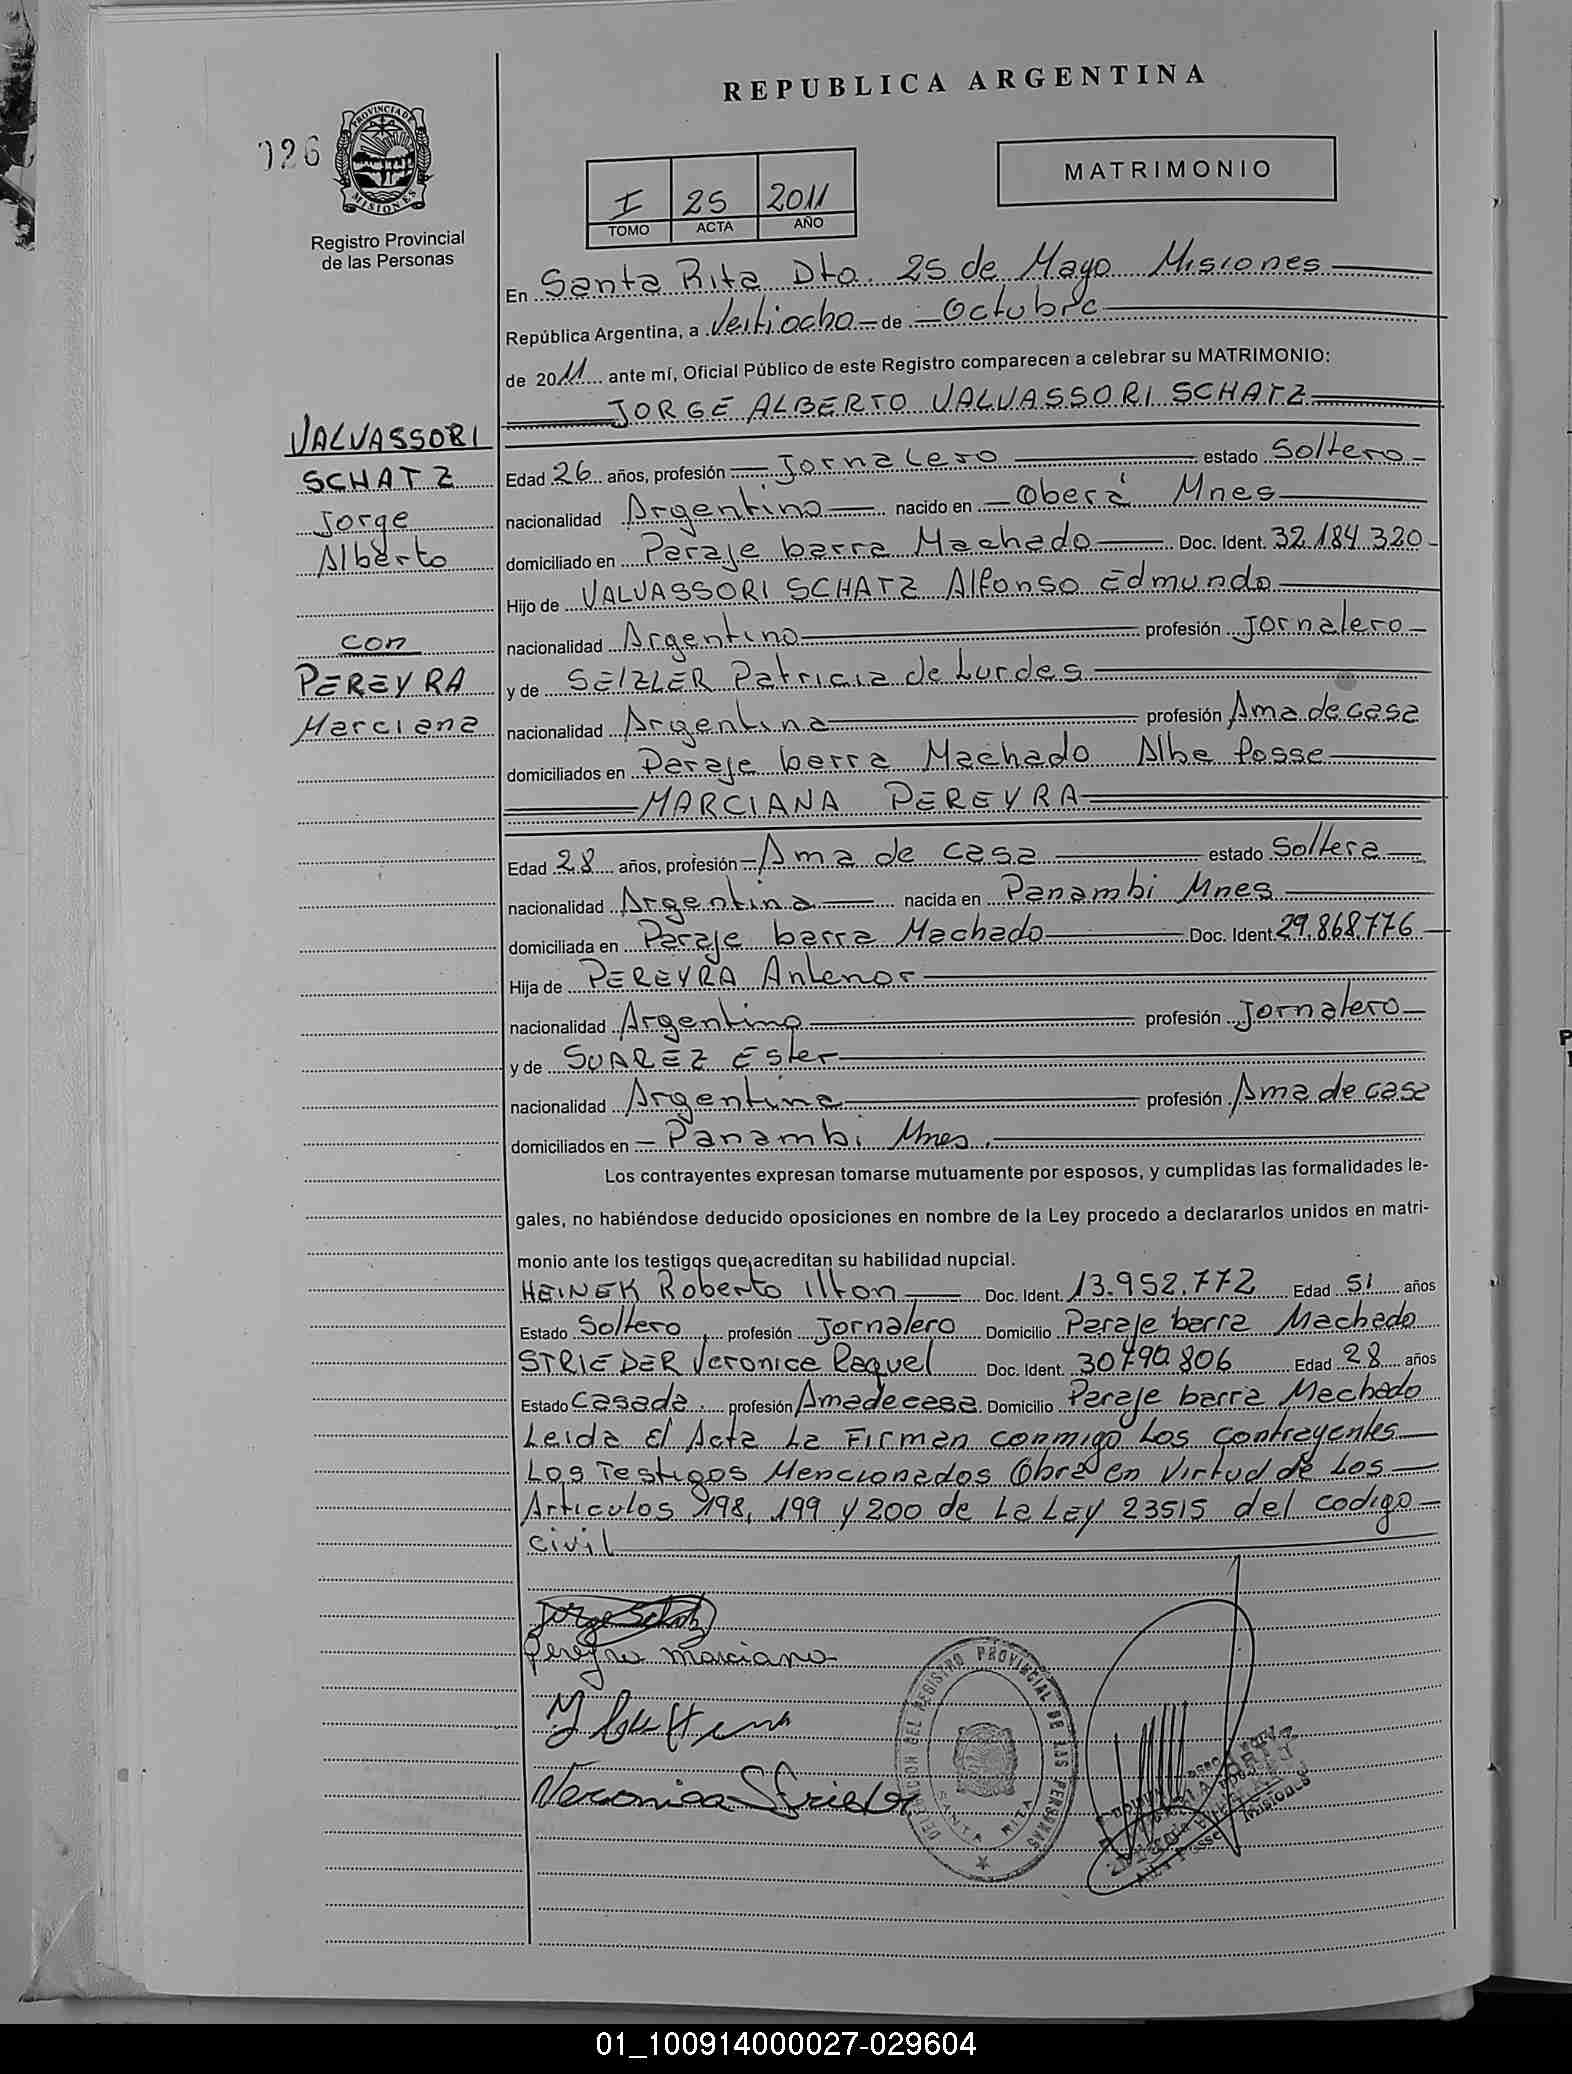 REPUBLICA ARGENTINA
026
PROVINCIA DE MISIONES
Registro Provincial
de las Personas
MATRIMONIO
I 25 2011
TOMO ACTA AÑO
En Santa Rita Dto. 25 de Mayo Misiones
República Argentina, a Veitiocho de Octubre
de 2011 ante mí, Oficial Público de este Registro comparecen a celebrar su MATRIMONIO:
JORGE ALBERTO VALVASSORI SCHATZ
VALVASSORI
SCHATZ
Jorge
Alberto
con
PEREYRA
Marciana
Edad 26 años, profesión Jornalero estado Soltero
nacionalidad Argentino nacido en Oberá Mnes
domiciliado en Paraje barra Machado Doc. Ident. 32.184.320
Hijo de VALVASSORI SCHATZ Alfonso Edmundo
nacionalidad Argentino profesión Jornalero
y de SEIZLER Patricia de Lurdes
nacionalidad Argentina profesión Ama de casa
domiciliados en Paraje barra Machado Alba Posse
MARCIANA PEREYRA
Edad 28 años, profesión Ama de casa estado Soltera
nacionalidad Argentina nacida en Panambi Mnes
domiciliada en Paraje barra Machado Doc. Ident. 29.868.776
Hija de PEREYRA Antenor
nacionalidad Argentino profesión Jornalero
y de SUAREZ Ester
nacionalidad Argentina profesión Ama de casa
domiciliados en Panambi Mnes.
Los contrayentes expresan tomarse mutuamente por esposos, y cumplidas las formalidades le-
gales, no habiéndose deducido oposiciones en nombre de la Ley procedo a declararlos unidos en matri-
monio ante los testigos que acreditan su habilidad nupcial.
HEINEK Roberto Ilton Doc. Ident. 13.952.772 Edad 51 años
Estado Soltero, profesión Jornalero Domicilio Paraje barra Machado
STRIEDER Veronica Raquel Doc. Ident. 30790806 Edad 28 años
Estado Casada. profesión Ama de casa Domicilio Paraje barra Machado
Leida El Acta La Firman conmigo Los contrayentes
Los Testigos Mencionados Obra en Virtud de Los
Articulos 198, 199 y 200 de La Ley 23515 del codigo
civil
Jorge Schatz
Pereyra Marciana
Veronica Strieder
DELEGACION DEL REGISTRO PROVINCIAL DE LAS PERSONAS
SANTA RITA
Alba Posse Misiones
01_100914000027-029604